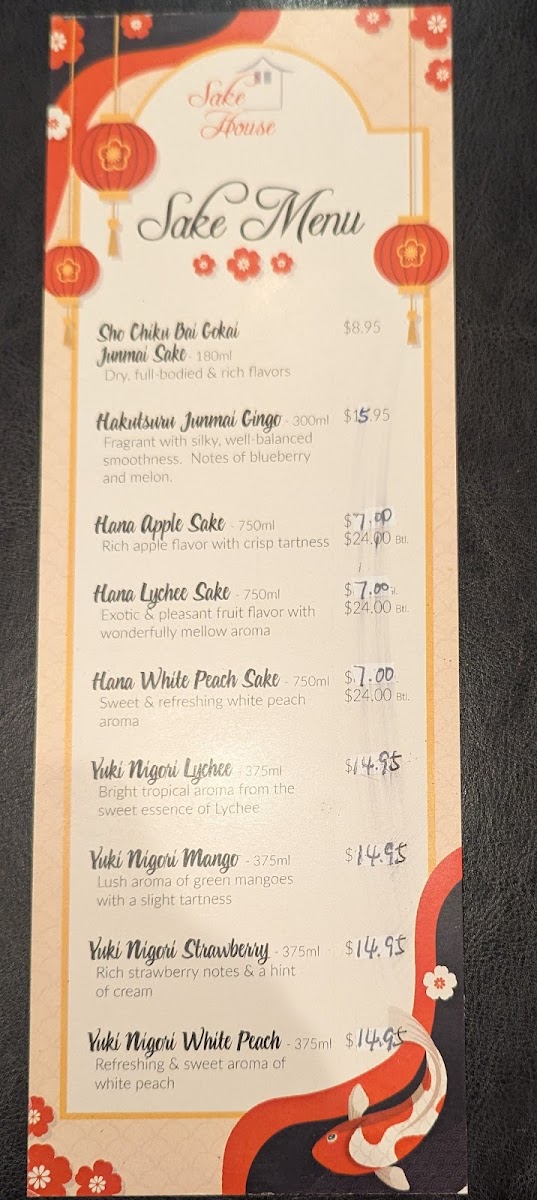 Sake
House
Sake Menu
Sho Chiku Bai Gokai
Junmai Sake - 180ml $8.95
Dry, full-bodied & rich flavors
Hakutsuru Junmai Gingo - 300ml $15.95
Fragrant with silky, well-balanced
smoothness. Notes of blueberry
and melon.
Hana Apple Sake - 750ml $7.00
Rich apple flavor with crisp tartness $24.00 Btl.
Hana Lychee Sake - 750ml $7.00
Exotic & pleasant fruit flavor with $24.00 Btl.
wonderfully mellow aroma
Hana White Peach Sake - 750ml $7.00
Sweet & refreshing white peach $24.00 Btl.
aroma
Yuki Nigori Lychee - 375ml $14.95
Bright tropical aroma from the
sweet essence of Lychee
Yuki Nigori Mango - 375ml $14.95
Lush aroma of green mangoes
with a slight tartness
Yuki Nigori Strawberry - 375ml $14.95
Rich strawberry notes & a hint
of cream
Yuki Nigori White Peach - 375ml $14.95
Refreshing & sweet aroma of
white peach